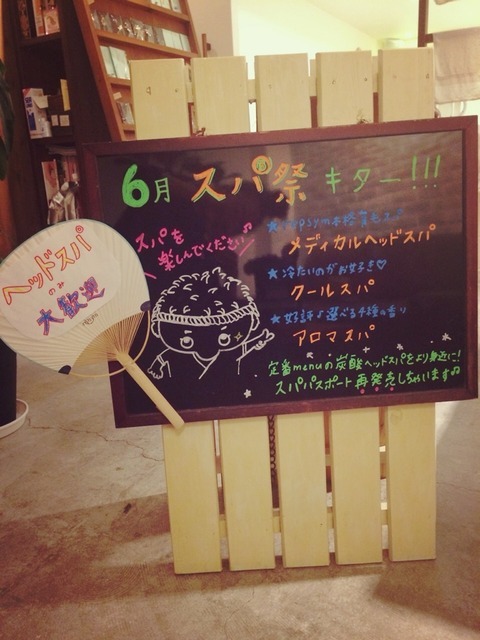 6月 スパ祭 キター!!!
スパを
楽しんでください♪
メディカルヘッドスパ
★冷たいのがお好き♡
クールスパ
★好評♪選べる4種の香り
アロマスパ
定番menuの炭酸ヘッドスパをより身近に!
スパパスポート再発売しちゃいます♫
ヘッドスパ
のみ
大歓迎